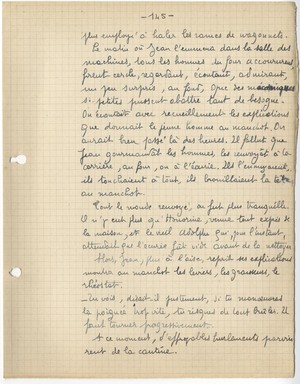 - 145 -
plus employé à haler les rames de wagonnets.
Le matin où Jean l'emmena dans la salle des
machines, tous les hommes du four accoururent
firent cercle, regardant, écoutant, admirant,
un peu surpris, au fond, que des mécaniques
si petites pussent abattre tant de besogne.
On écoutait avec recueillement les explications
que donnait le jeune homme au manchot. On
aurait bien passé là des heures. Il fallut que
Jean gourmandât les hommes, les envoyât à la
carrière, au four, on à l'écurie. Ils l'ennuyaient,
ils touchaient à tout, ils brouillaient la tête
au manchot.
Tout le monde renvoyé, on fut plus tranquille.
Il n'y eut plus qu'Honorine, venue tout exprès de
la maison, et le vieil Adolphe qui, pour l'instant,
attendait que l'écurie fût vide avant de la nettoyer.
Alors, Jean, plus à l'aise, reprit ses explications
montra au manchot les leviers, les graisseurs, le
rhéostat.
- Tu vois, disait-il justement, si tu manœuvres
ta poignée trop vite, tu risques de tout brûler. Il
faut tourner progressivement.
A ce moment, d'effroyables hurlements parvin-
rent de la cantine.